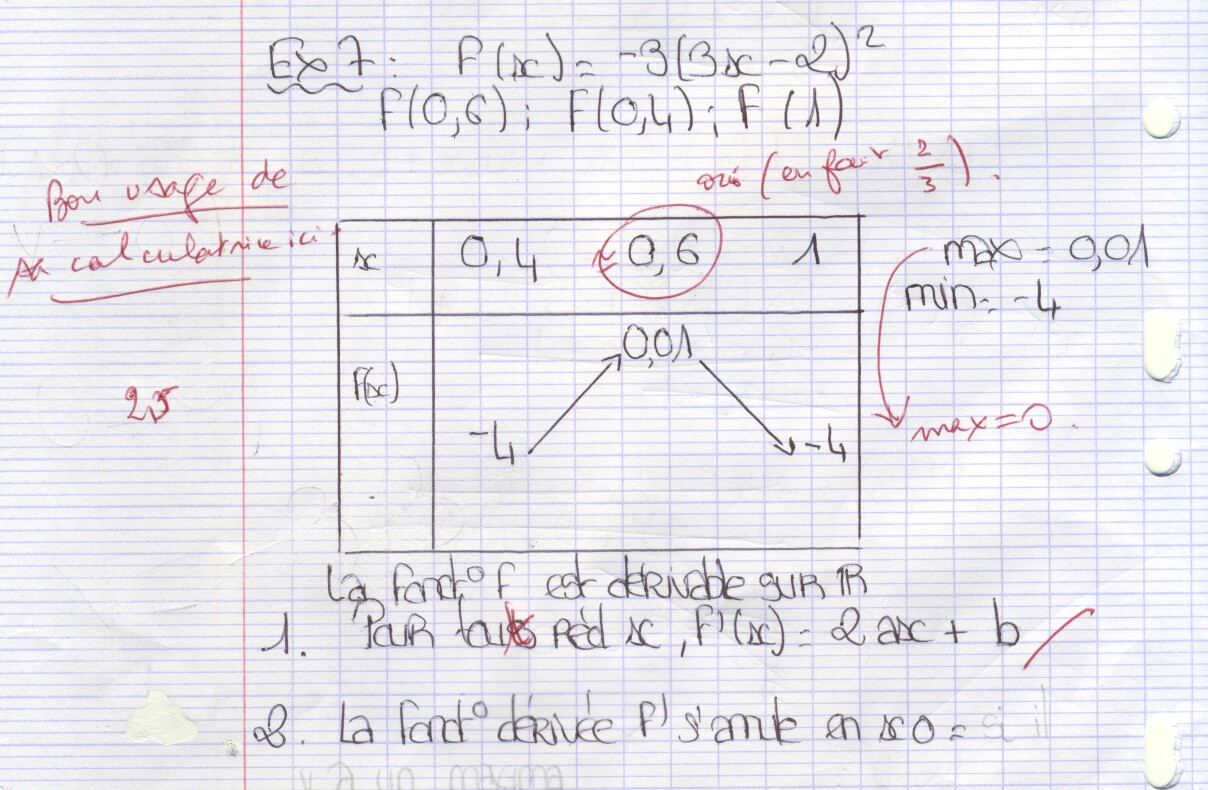 Ex 7 : F(x) = -3(3x-2)²
F(0,6) ; F(0,4) ; F(1)
oui (en fait 2/3).
Bon usage de
la calculatrice ici
x 0,4 ≈0,6 1
max = 0,01
min = -4
F(x) 0,01
-4 -4
2,5
max = 0.
La fonct° F est dérivable sur IR
1. Pour touts réel x, F'(x) = 2ax + b
2. La fonct° dérivée F' s'annule en x0 = si il
y a un maxima